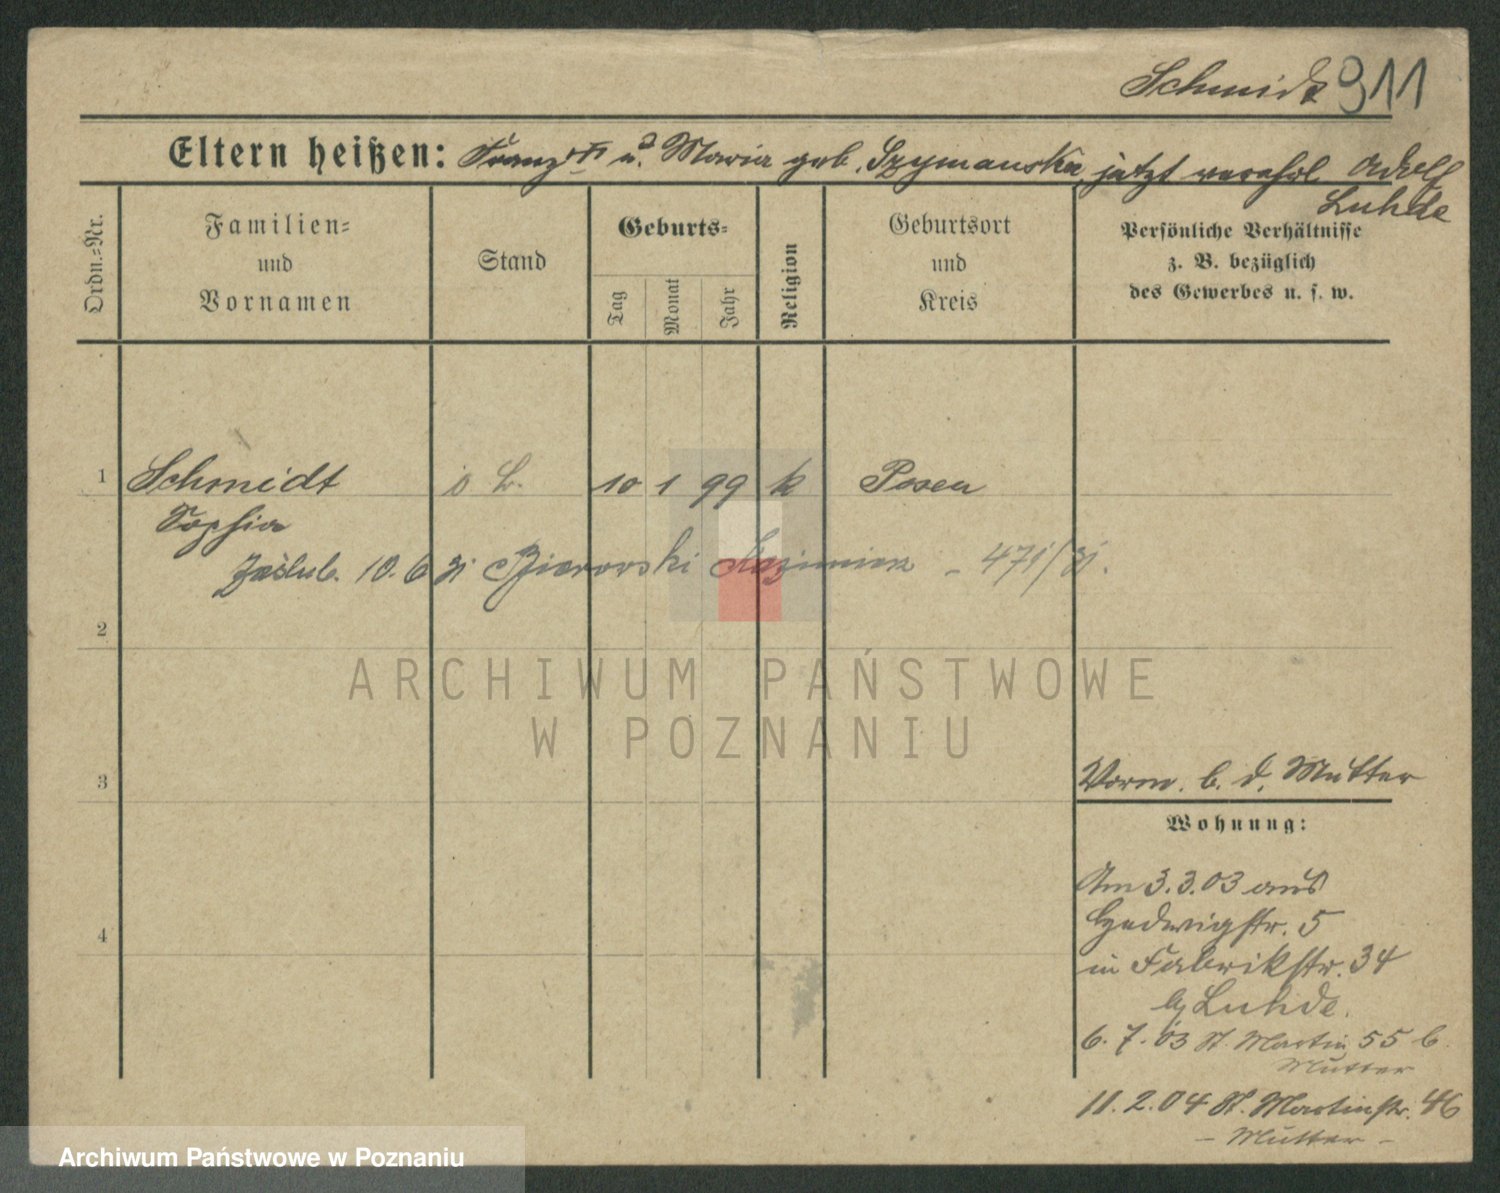 Schmidt 911
Eltern heißen: Franz † u. Maria geb. Szymanska, jetzt verehel. Adolf
Luhde
Ordn.-Nr.
Familien-
und
Vornamen
Stand
Geburts-
Tag
Monat
Jahr
Religion
Geburtsort
und
Kreis
Persönliche Verhältnisse
z. B. bezüglich
des Gewerbes u. s. w.
1 Schmidt 10 1 99 k Posen
Sophia
Zaślub. 10.6 31 Kazimierz - 471/31.
2
ARCHIWUM PAŃSTWOWE
W POZNANIU
3
Vorm. b. d. Mutter
Wohnung:
Am 3.3.03 aus
Hedwigstr. 5
4
in Fabrikstr. 34
b/ Luhde.
6.7.03 St. Martin 55 b.
Mutter
11.2.04 St. Martinstr. 46
- Mutter -
Archiwum Państwowe w Poznaniu